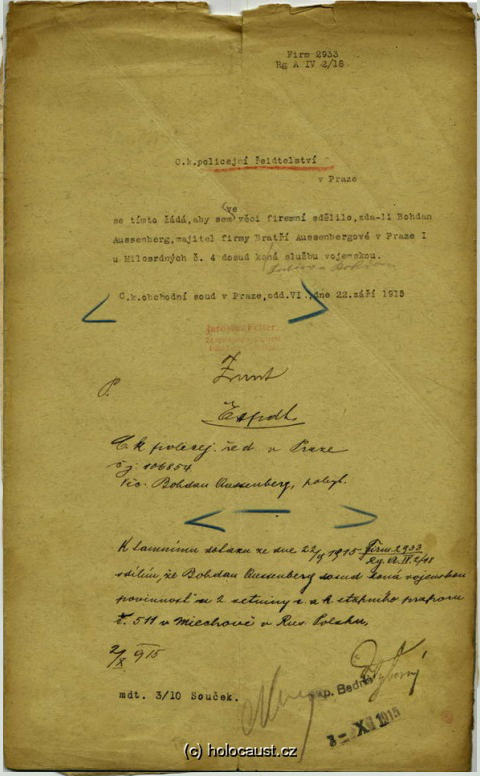 Firm 2933
Rg A IV 2/18
C.k.policejní ředitelství
v Praze
ve
se tímto žádá,aby sem věci firemní sdělilo,zda-li Bohdan
Aussenberg,majitel firmy Bratří Aussenbergové v Praze I
u Milosrdných č. 4 dosud koná službu vojenskou.
C.k.obchodní soud v Praze,odd.VI.,dne 22.září 1915
P.
C.k. policej. řed. v Praze
č.j. 106854
Bohdan Aussenberg, pobyt.
K tamnímu dotazu ze dne 22/9 1915 Firm 2933
Rg. A. IV. 2/18
sdělím, že Bohdan Aussenberg dosud koná vojenskou
povinnost u 2 setniny c. a k etapního praporu
č. 511 v Miechově v Rus. Polsku.
2/X 915
mdt. 3/10 Souček.
3-XII 1915
(c) holocaust.cz